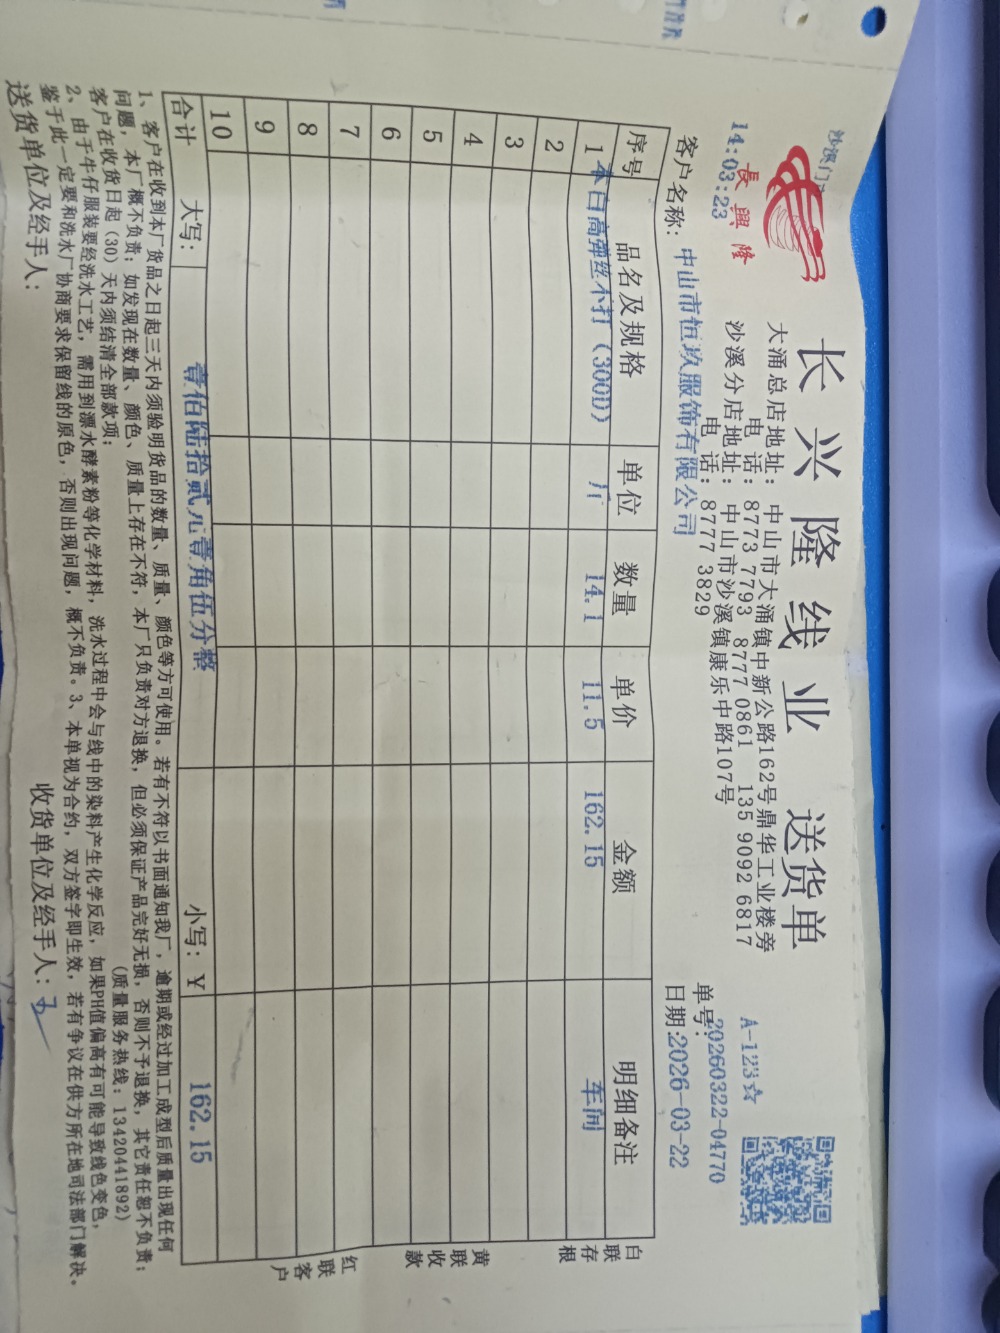 長興隆
14:03:23
长兴隆线业 送货单
大涌总店地址：中山市大涌镇中新公路162号鼎华工业楼旁
电 话：8773 7793 8777 0861 135 9092 6817
沙溪分店地址：中山市沙溪镇康乐中路107号
电 话：8777 3829
A-123☆
单号：20260322-04770
客户名称：中山市恒玖服饰有限公司
日期：2026-03-22
序号 品名及规格 单位 数量 单价 金额 明细备注
1 本白高弹丝不打（300D） 斤 14.1 11.5 162.15 车间
2
3
4
5
6
7
8
9
10
合计 大写：壹佰陆拾贰元壹角伍分整 小写：￥ 162.15
白联存根
黄联收款
红联客户
1、客户在收到本厂货品之日起三天内须验明货品的数量、质量、颜色等方可使用。若有不符以书面通知我厂，逾期或经过加工成型后质量出现任何
问题，本厂概不负责；如发现在数量、颜色、质量上存在不符，本厂只负责对方退换，但必须保证产品完好无损，否则不予退换，其它责任恕不负责；
客户在收货日起（30）天内须结清全部款项； （质量服务热线：13420441892）
2、由于牛仔服装要经洗水工艺，需用到漂水酵素粉等化学材料，洗水过程中会与线中的染料产生化学反应，如果PH值偏高有可能导致线色变色，
鉴于此一定要和洗水厂协商要求保留线的原色，否则出现问题，概不负责。3、本单视为合约，双方签字即生效，若有争议在供方所在地司法部门解决。
送货单位及经手人： 收货单位及经手人：